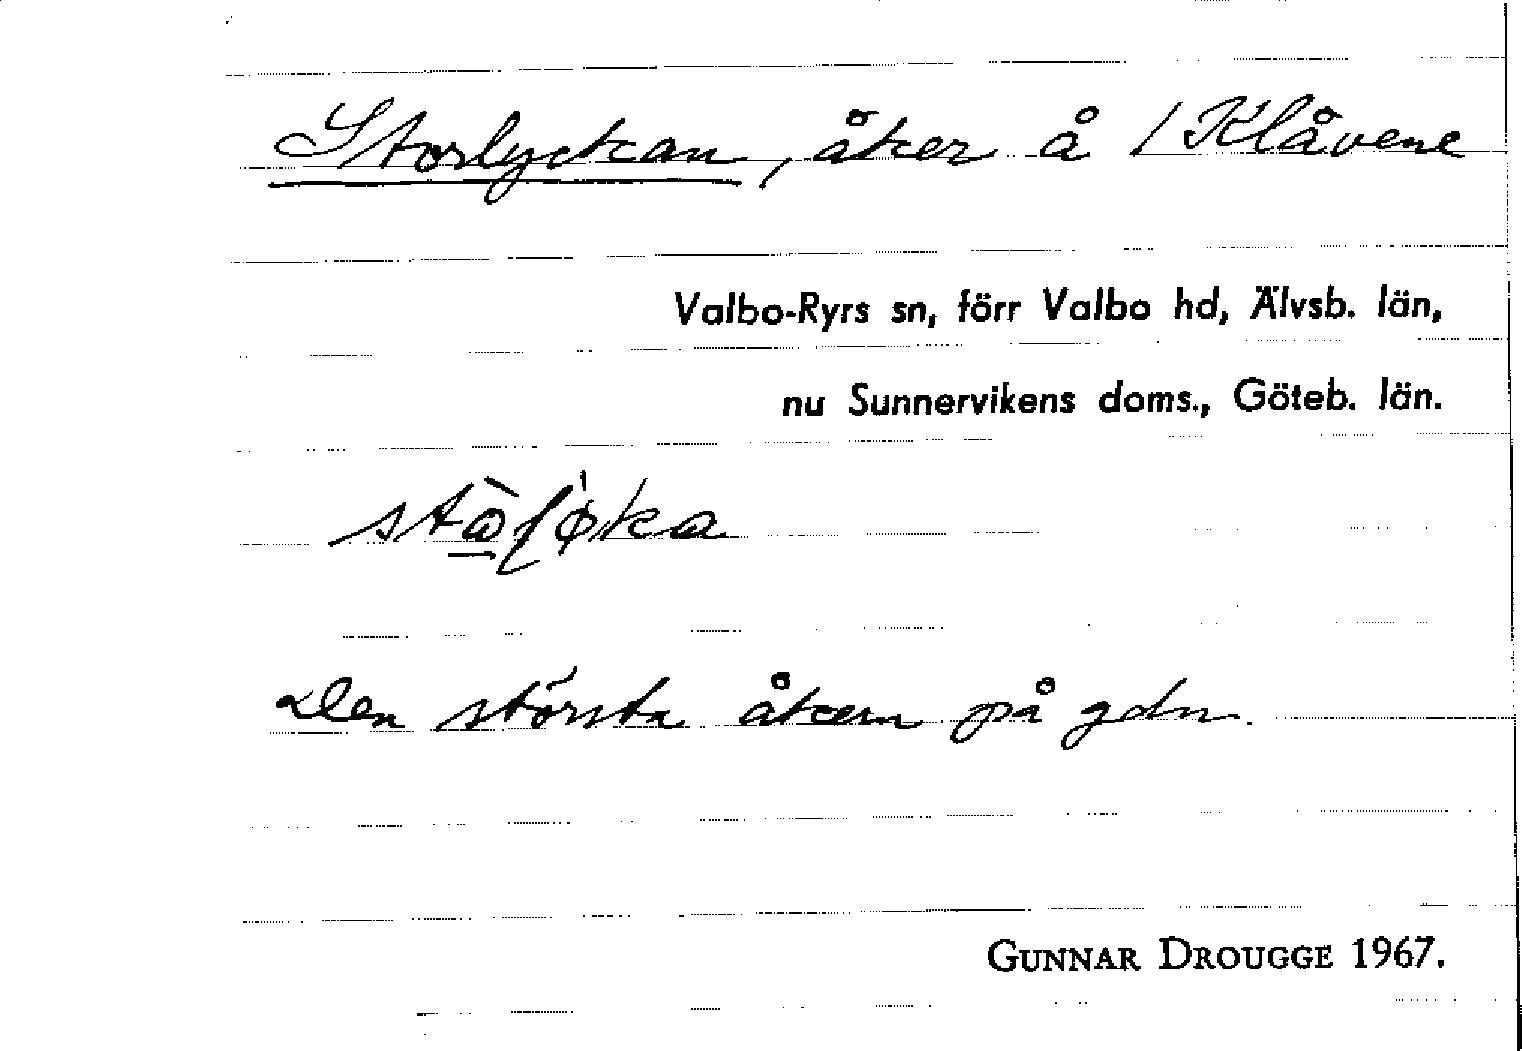 Storlyckan, åker å / Klåvene
Valbo-Ryrs sn, förr Valbo hd, Älvsb. län,
nu Sunnervikens doms., Göteb. län.
Den största åkern på gdn.
GUNNAR DROUGGE 1967.